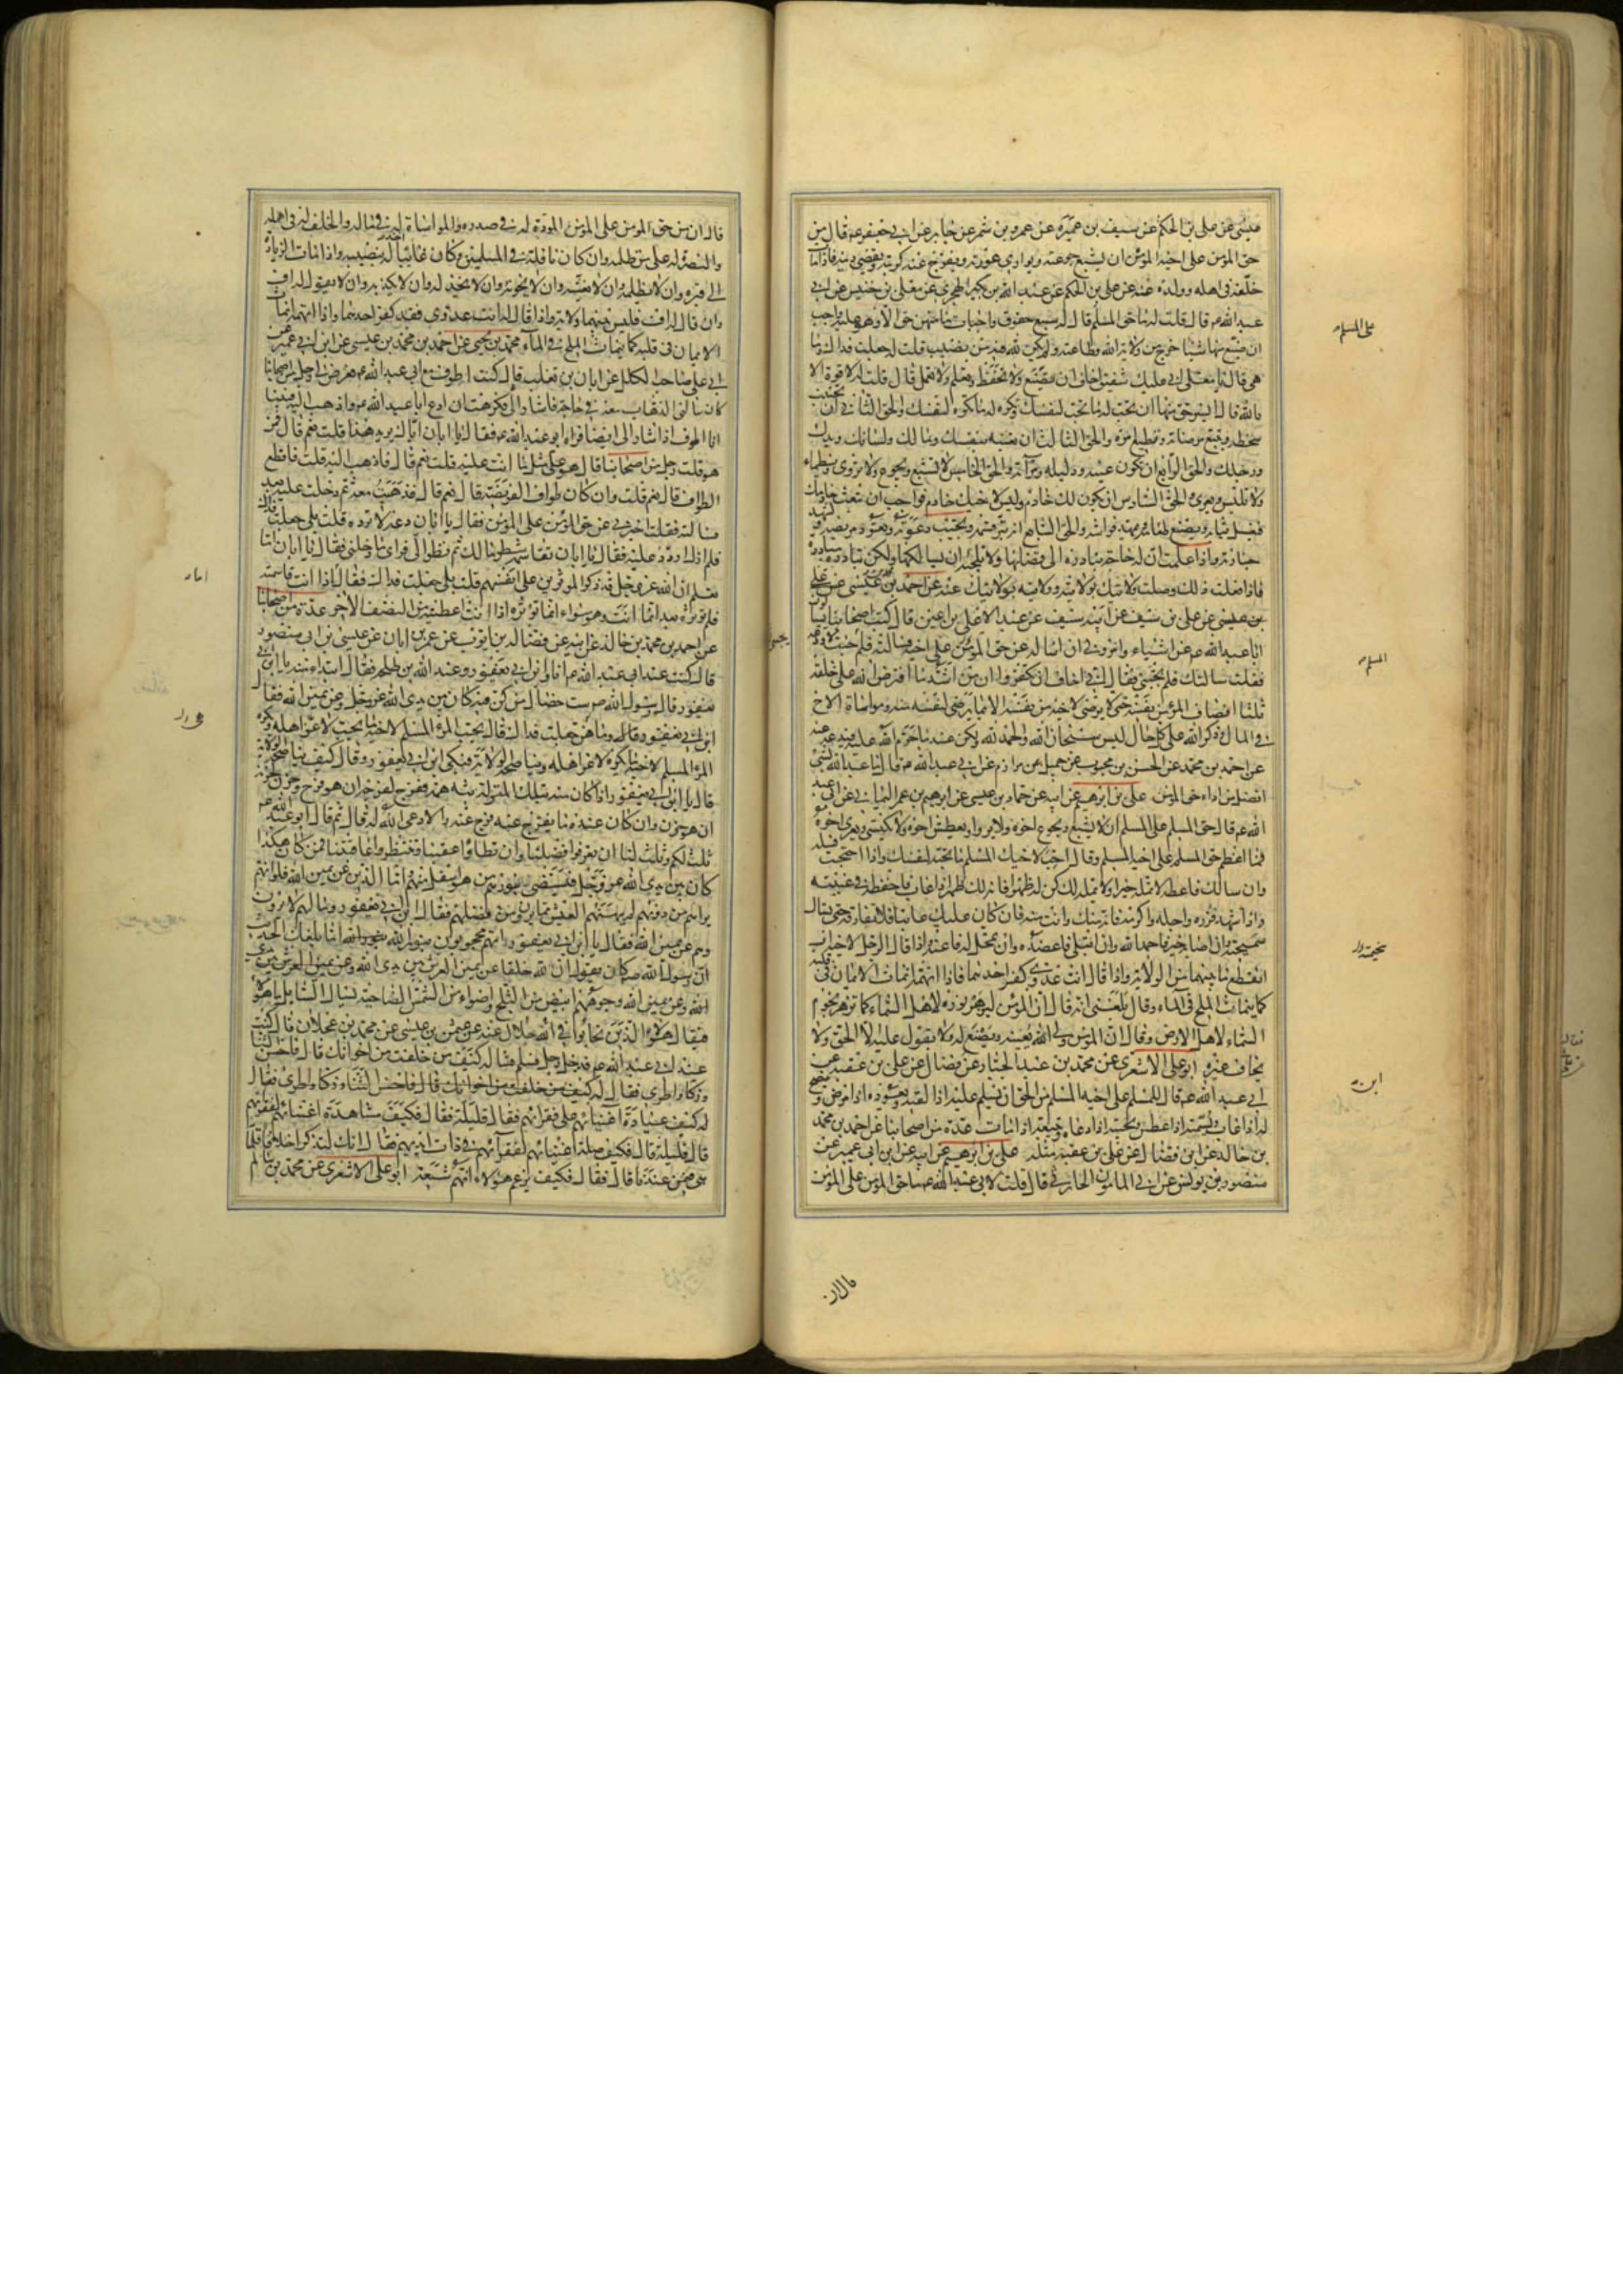 عيسى عن علي بن الحكم عن سيف بن عميرة عن عمرو بن شمر عن جابر عن ابي جعفر عم قال من
حق المؤمن على اخيه المؤمن ان يشبع جوعته ويواري عورته ويفرج عنه كربته ويقضي دينه فاذا مات
خلفه في اهله وولده عنه عن علي بن الحكم عن عبد الله بن بكير الهجري عن معلى بن خنيس عن ابي
عبد الله عم قال قلت له ما حق المسلم قال له سبع حقوق واجبات ما منهن حق الا وهو عليه واجب
ان ضيع منها شيئا خرج من ولاية الله وطاعته ولم يكن لله فيه من نصيب قلت له جعلت فداك وما
هي قال يا معلى اني عليك شفيق اخاف ان تضيع ولا تحفظ وتعلم ولا تعمل قال قلت له لا قوة الا
بالله قال ايسر حق منها ان تحب له ما تحب لنفسك وتكره له ما تكره لنفسك والحق الثاني ان تجتنب
سخطه وتتبع مرضاته وتطيع امره والحق الثالث ان تعينه بنفسك ومالك ولسانك ويدك
ورجلك والحق الرابع ان تكون عينه ودليله ومرآته والحق الخامس لا تشبع ويجوع ولا تروى ويظماء
ولا تلبس ويعرى والحق السادس ان يكون لك خادم وليس لاخيك خادم فواجب ان تبعث خادمك
فيغسل ثيابه ويصنع طعامه ويمهد فراشه والحق السابع ان تبر قسمه وتجيب دعوته وتعود مريضه وتشهد
جنازته واذا علمت ان له حاجة تبادره الى قضائها ولا تلجئه ان يسالكها ولكن تبادره مبادرة
فاذا فعلت ذلك وصلت ولايتك بولايته وولايته بولايتك عنه عن احمد بن محمد بن عيسى عن علي
بن عيسى عن علي بن سيف عن ابيه سيف عن عبد الاعلى بن اعين قال كتب اصحابنا يسالون
ابا عبد الله عم عن اشياء وامروني ان اساله عن حق المؤمن على اخيه فسالته فلم يجبني فلما جئت لاودعه
فقلت سالتك فلم تجبني فقال اني اخاف ان تكفروا ان من اشد ما افترض الله على خلقه
ثلثا انصاف المؤمن نفسه حتى لا يرضى لاخيه من نفسه الا بما يرضى لنفسه منه ومواساة الاخ
في المال وذكر الله على كل حال ليس سبحان الله والحمد لله ولكن عند ما حرم الله عليه فيدعه
عن احمد بن محمد عن الحسن بن محبوب عن جميل عن مرازم عن ابي عبد الله عم قال ما عبد الله بشيء
افضل من اداء حق المؤمن علي بن ابرهيم عن ابيه عن حماد بن عيسى عن ابرهيم بن عمر اليماني عن ابي عبد
الله عم قال حق المسلم على المسلم ان لا يشبع ويجوع اخوه ولا يروى ويعطش اخوه ولا يكتسي ويعرى اخوه
فما اعظم حق المسلم على اخيه المسلم وقال احب لاخيك المسلم ما تحب لنفسك واذا احتجت فسله
وان سالك فاعطه لا تمله خيرا ولا يمله لك كن له ظهرا فانه لك ظهر اذا غاب فاحفظه في غيبته
واذا شهد فزره واجله واكرمه فانه منك وانت منه فان كان عليك عاتبا فلا تفارقه حتى تسال
سميحته وان اصابه خير فاحمد الله وان ابتلي فاعضده وان تمحل له فاعنه واذا قال الرجل لاخيه اف
انقطع ما بينهما من الولاية واذا قال انت عدوي كفر احدهما فاذا اتهمه انماث الايمان في قلبه
كما ينماث الملح في الماء وقال بلغني انه قال ان المؤمن ليزهر نوره لاهل السماء كما تزهر نجوم
السماء لاهل الارض وقال ان المؤمن ولي الله يعينه ويصنع له ولا يقول عليه الا الحق ولا
يخاف غيره ابو علي الاشعري عن محمد بن عبد الجبار عن ابن فضال عن علي بن عقبة عن
ابي عبد الله عم قال للمسلم على اخيه المسلم من الحق ان يسلم عليه اذا لقيه ويعوده اذا مرض وينصح
له اذا غاب ويسمته اذا عطس ويجيبه اذا دعاه ويتبعه اذا مات عدة من اصحابنا عن احمد بن محمد
بن خالد عن ابن فضال عن علي بن عقبة مثله علي بن ابرهيم عن ابيه عن ابن ابي عمير عن
منصور بن يونس عن ابي المامون الحارثي قال قلت لابي عبد الله عم ما حق المؤمن على المؤمن
على المسلم
المسلم
سخيمته
ابن
قال ان
قال ان من حق المؤمن على المؤمن المودة له في صدره والمواساة له في ماله والخلف له في اهله
والنصرة له على من ظلمه وان كان نافلة في المسلمين وكان غائبا اخذ له بنصيبه واذا مات الزيارة
الى قبره وان لا يظلمه وان لا يغشه وان لا يخونه وان لا يخذله وان لا يكذبه وان لا يقول له اف
وان قال له اف فليس بينهما ولاية واذا قال له انت عدوي فقد كفر احدهما واذا اتهمه انماث
الايمان في قلبه كما ينماث الملح في الماء محمد بن يحيى عن احمد بن محمد بن عيسى عن ابن ابي عمير عن
ابي علي صاحب الكلل عن ابان بن تغلب قال كنت اطوف مع ابي عبد الله عم فعرض لي رجل من اصحابنا
كان سالني الذهاب معه في حاجة فاشار الي فكرهت ان ادع ابا عبد الله عم واذهب اليه فبينا
انا اطوف اذ اشار الي ايضا فراه ابو عبد الله عم فقال يا ابان اياك يريد هذا قلت نعم قال فمن
هو قلت رجل من اصحابنا قال هو على مثل ما انت عليه قلت نعم قال فاذهب اليه قلت فاقطع
الطواف قال نعم قلت وان كان طواف الفريضة قال نعم قال فذهبت معه ثم دخلت عليه بعد
فسالته فقلت اخبرني عن حق المؤمن على المؤمن فقال يا ابان دعه لا ترده قلت بلى جعلت فداك
فلم ازل اردد عليه فقال يا ابان تقاسمه شطر مالك ثم نظر الي فراى ما دخلني فقال يا ابان اما
تعلم ان الله عز وجل قد ذكر الموثرين على انفسهم قلت بلى جعلت فداك فقال اذا انت قاسمته
فلم توثره بعد انما انت وهو سواء انما توثره اذا انت اعطيته من النصف الاخر عدة من اصحابنا
عن احمد بن محمد بن خالد عن ابيه عن فضالة بن ايوب عن عمر بن ابان عن عيسى بن ابي منصور
قال كنت عند ابي عبد الله عم انا وابن ابي يعفور وعبد الله بن طلحة فقال ابتداء منه يا ابن ابي
يعفور قال رسول الله ص ست خصال من كن فيه كان بين يدي الله عز وجل وعن يمين الله فقال
ابن ابي يعفور وما هن جعلت فداك قال يحب المرء المسلم لاخيه ما يحب لاعز اهله ويكره
المرء المسلم لاخيه ما يكره لاعز اهله ويناصحه الولاية فبكى ابن ابي يعفور وقال كيف يناصحه الولاية
قال يا ابن ابي يعفور اذا كان منه بتلك المنزلة بثه همه ففرح لفرحه ان هو فرح وحزن لحزنه
ان هو حزن وان كان عنده ما يفرج عنه فرج عنه والا دعى الله له قال ثم قال ابو عبد الله عم
ثلث لكم وثلث لنا ان تعرفوا فضلنا وان تطاوا عقبنا وتنتظروا عاقبتنا فمن كان هكذا
كان بين يدي الله عز وجل فيستضيء بنورهم من هو اسفل منهم اما الذين عن يمين الله فلو انهم
يراهم من دونهم لم يهنئهم العيش مما يرون من فضلهم فقال ابن ابي يعفور وما لهم لا يرون
وهم عن يمين الله فقال يا ابن ابي يعفور انهم محجوبون بنور الله اما بلغك الحديث
ان رسول الله ص كان يقول ان لله خلقا عن يمين العرش بين يدي الله وعن يمين العرش بين يدي
الله وعن يمين الله وجوههم ابيض من الثلج واضواء من الشمس الضاحية يسال السائل ما هؤلاء
فيقال هؤلاء الذين تحابوا في الله جلال عنه عن عثمن بن عيسى عن محمد بن عجلان قال كنت
عند ابي عبد الله عم فدخل رجل فسلم فساله كيف من خلفت من اخوانك قال فاحسن الثناء
وزكا واطرى فقال له كيف من خلفت من اخوانك قال فاحسن الثناء وزكا واطرى فقال
له كيف عيادة اغنيائهم على فقرائهم فقال قليلة فقال فكيف مشاهدة اغنيائهم لفقرائهم
قال قليلة قال فكيف صلة اغنيائهم لفقرائهم في ذات ايديهم فقال انك لتذكر اخلاقا قلما
هي فيمن عندنا قال فقال فكيف يزعم هؤلاء انهم شيعة ابو علي الاشعري عن محمد بن سالم